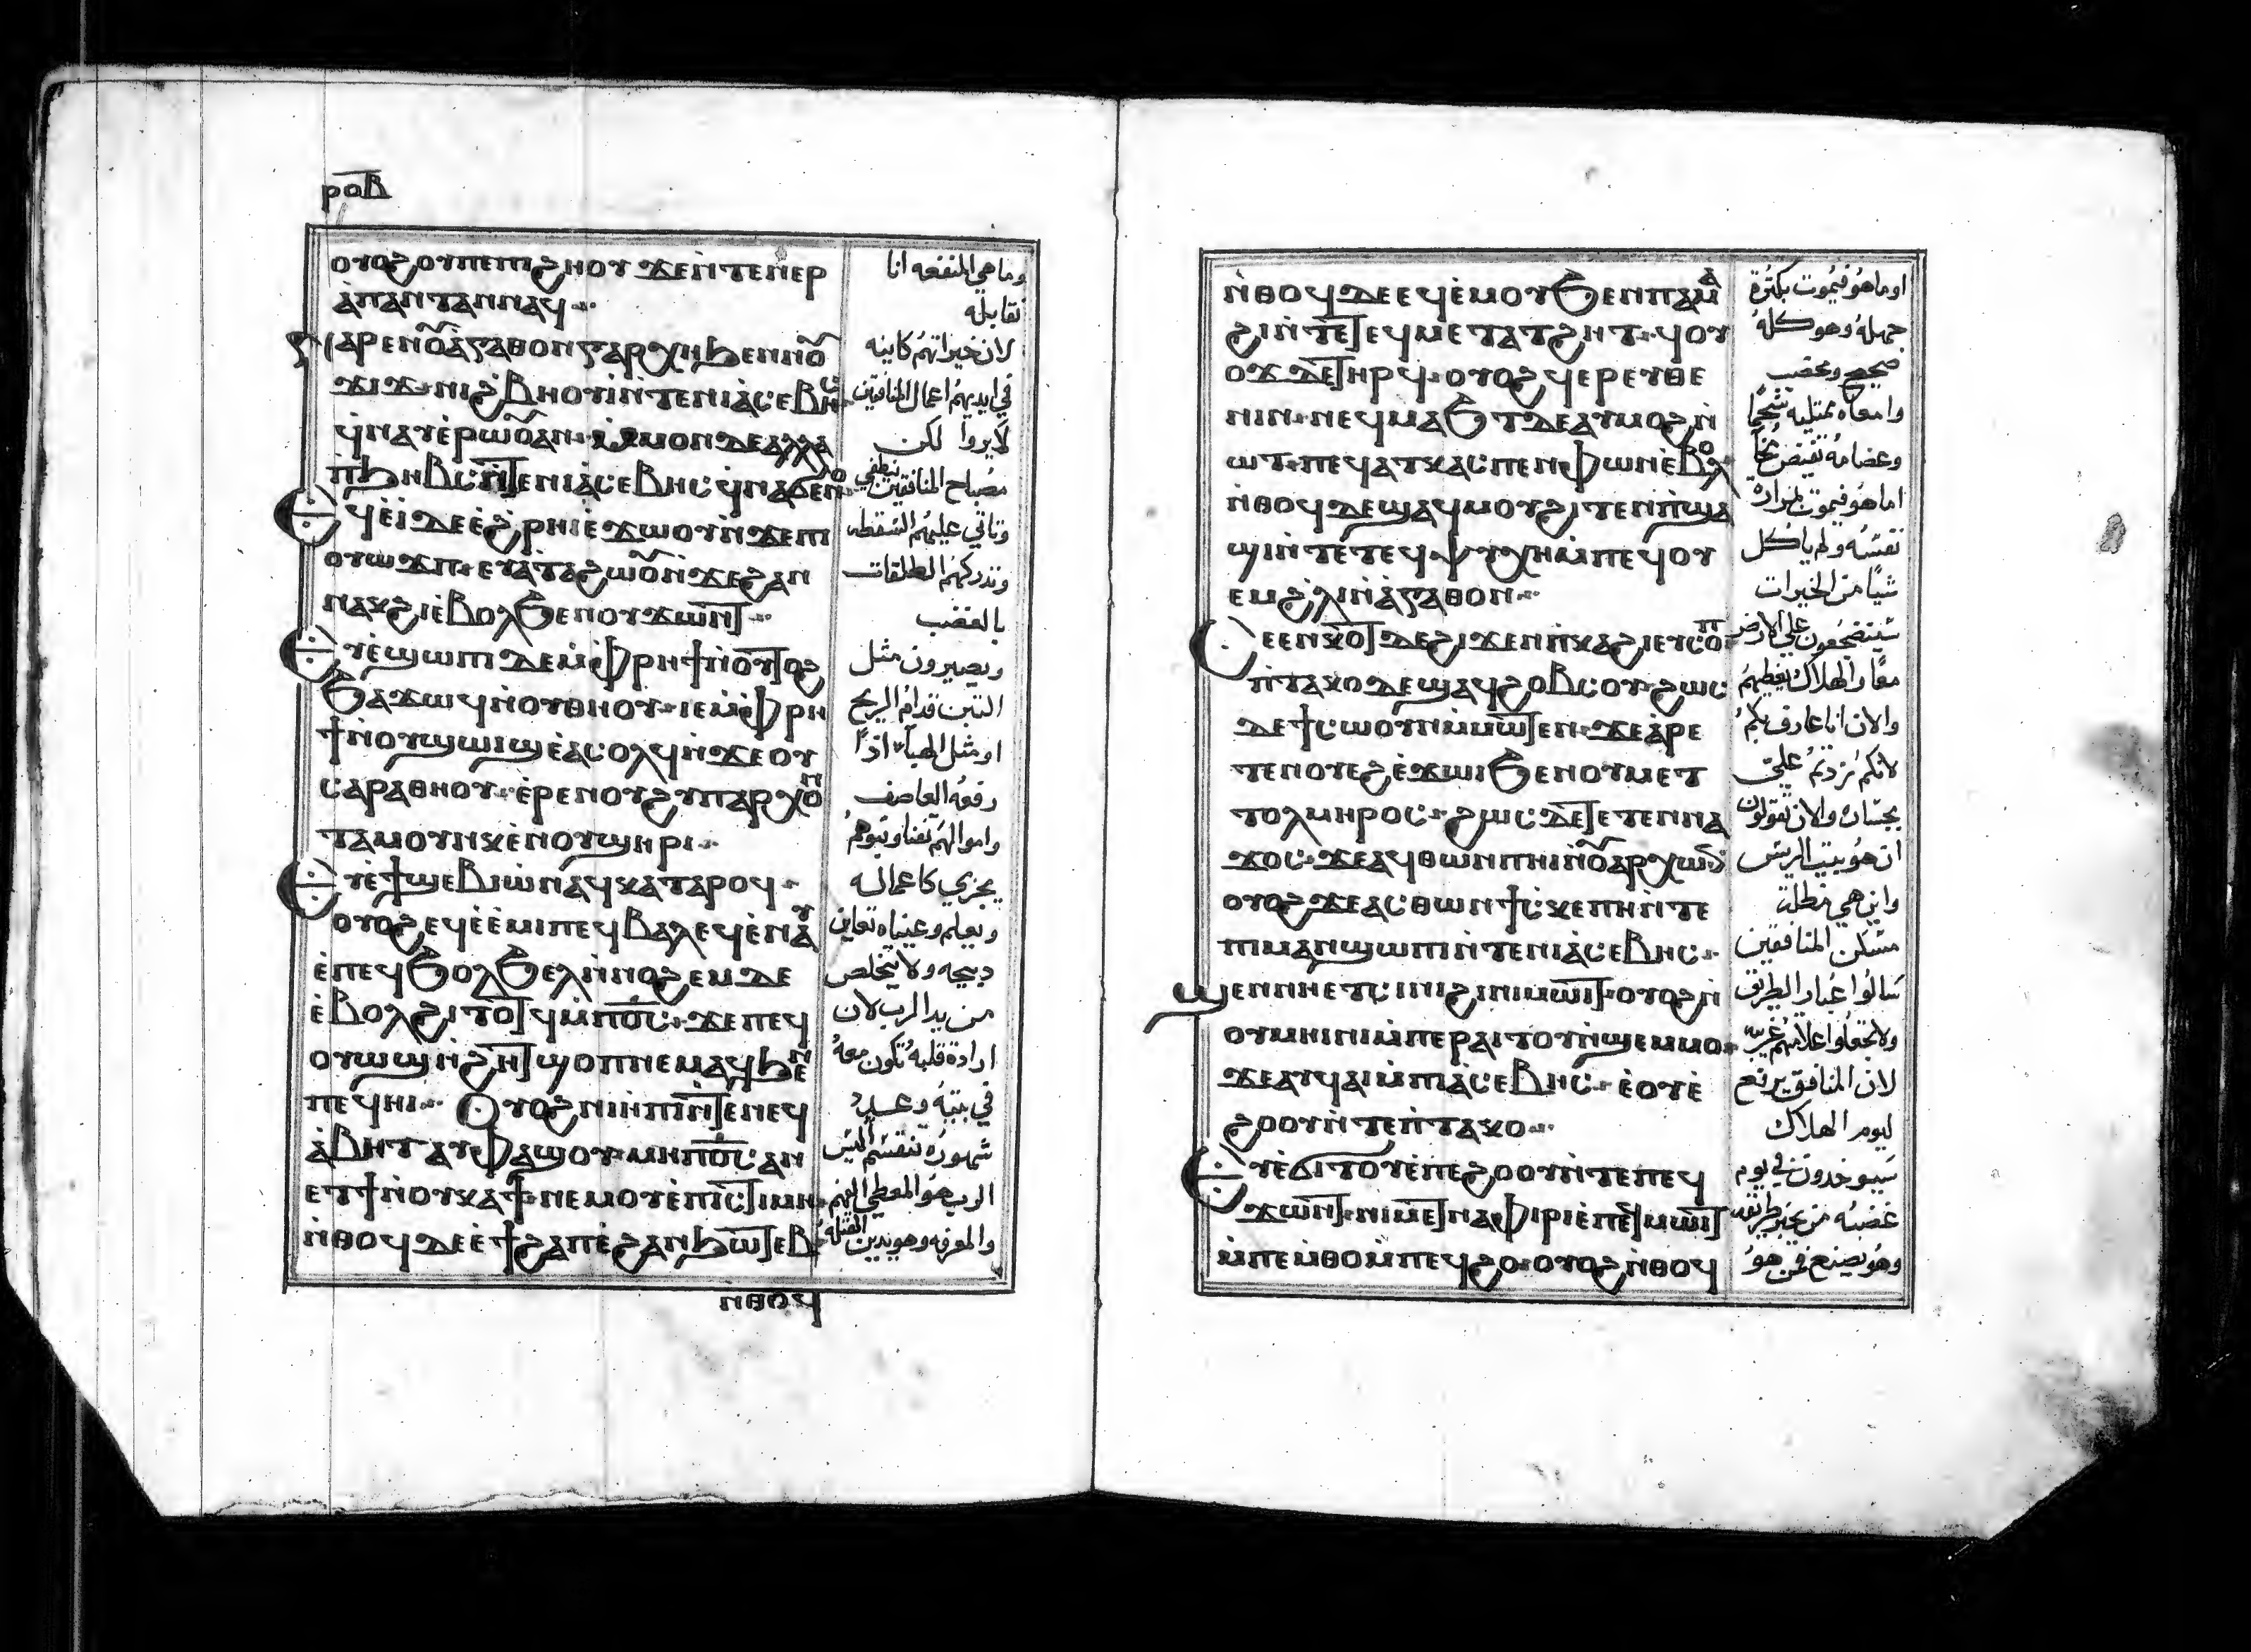 ⲣⲟⲃ
ⲟⲩⲟϩ ⲟⲩⲡⲉⲧϩⲏⲟⲩ ϫⲉⲛ̀ⲧⲉⲛⲉⲣ
ⲁ̀ⲡⲁⲛⲧⲁⲛ ⲛⲁϥ
ⲛⲁⲣⲉ ⲛⲟⲩⲁ̀ⲅⲁⲑⲟⲛ ⲅⲁⲣ ⲭⲏ ϧⲉⲛ ⲛⲟⲩ
ϫⲓϫ ⲛⲓϩ̀ⲃⲏⲟⲩⲓ̀ ⲛ̀ⲧⲉ ⲛⲓⲁ̀ⲥⲉⲃⲏⲥ
ϥ̀ⲛⲁⲩ ⲉ̀ⲣⲱⲟⲩ ⲁⲛ ⲙ̀ⲙⲟⲛ ⲇⲉ ⲁⲗⲗⲁ
ⲡ̀ϧⲏⲃⲥ ⲛ̀ⲧⲉ ⲛⲓⲁ̀ⲥⲉⲃⲏⲥ ϥ̀ⲛⲁϭⲉⲛⲟ
ⲉϥⲉ̀ⲓ̀ ⲇⲉ ⲉ̀ϩ̀ⲣⲏⲓ ⲉ̀ϫⲱⲟⲩ ⲛ̀ϫⲉ ⲡⲓ
ⲟⲩⲱϫⲡ ⲉⲩⲁ̀ⲧⲁϩⲱⲟⲩ ⲛ̀ϫⲉ ϩⲁⲛ
ⲛⲁⲕϩⲓ ⲉ̀ⲃⲟⲗ ϧⲉⲛ ⲟⲩϫⲱⲛⲧ
ⲉⲩⲉ̀ϣⲱⲡⲓ ⲇⲉ ⲙ̀ⲫⲣⲏϯ ⲛ̀ⲟⲩⲧⲟϩ
ϧⲁϫⲱϥ ⲛ̀ⲟⲩⲑⲏⲟⲩ ⲓⲉ ⲙ̀ⲫⲣⲏ
ϯ ⲛ̀ⲟⲩϣⲱⲓϣ ⲉ̀ⲁⲥⲟⲗϥ ⲛ̀ϫⲉ ⲟⲩ
ⲥⲁⲣⲁⲑⲏⲟⲩ ⲉ̀ⲣⲉ ⲛⲟⲩϩⲩⲡⲁⲣⲭⲟⲛ
ⲧⲁ ⲙⲟⲩⲛⲕ ⲉ̀ⲛⲟⲩϣⲏⲣⲓ
ⲉⲩⲉ̀ϯϣⲉⲃⲓⲱ̀ ⲛⲁϥ ⲕⲁⲧⲁⲣⲟϥ
ⲟⲩⲟϩ ⲉϥⲉ̀ⲉ̀ⲙⲓ ⲡⲉϥⲃⲁⲗ ⲉϥⲉ̀ⲛⲁⲩ
ⲉ̀ⲡⲉϥϧⲟⲗϧⲉⲗ ⲛ̀ⲛⲟϩⲉⲙ ⲇⲉ
ⲉ̀ⲃⲟⲗϩⲓⲧⲟⲧϥ ⲙ̀ⲡϭⲟⲓⲥ ϫⲉ ⲡⲉϥ
ⲟⲩⲱϣ ⲛ̀ϩⲏⲧ ϣⲟⲡ ⲛⲉⲙⲁϥ ϧⲉⲛ
ⲡⲉϥⲏⲓ ⲟⲩⲟϩ ⲛⲓⲏⲡⲓ ⲛ̀ⲧⲉ ⲛⲉϥ
ⲁ̀ⲃⲏⲧ ⲁⲩⲫⲁϣⲟⲩ ⲙⲏ ⲡϭⲟⲓⲥ ⲁⲛ
ⲉⲧϯ ⲛ̀ⲟⲩⲕⲁϯ ⲛⲉⲙ ⲟⲩⲉ̀ⲡⲓⲥⲧⲓⲙⲏ
ⲛ̀ⲑⲟϥ ⲇⲉ ⲉ̀ϯϩⲁⲡ ⲉ̀ϩⲁⲛϧⲱⲧⲉⲃ
ⲛⲑⲟϥ
وما هى المنفعه انا
نقابله
لان خيراتهم كاينه
في ايديهم اعمال المنافقين
لايروا لكن
مصباح المنافقين ينطفي
وتاتي عليهم السقطه
وتدركهم الطلقات
بالغضب
ويصيرون مثل
التبن قدام الريح
او مثل الهباء اذا
رفعه العاصف
واموالهم تفنا وبنوهم
يجزي كاعماله
ويعلم وعيناه تعاين
ذبيحه ولا يتخلص
من يد الرب لان
ارادة قلبه تكون معه
في بيته وعدد
شهوره تنقسم اليس
الرب هو المعطي الفهم
والمعرفه وهو يدين القتله
ⲛ̀ⲑⲟϥ ⲇⲉ ⲉϥⲉ̀ⲙⲟⲩ ϧⲉⲛ ⲡⲁⲙⲁ
ϩⲓ ⲛ̀ⲧⲉ ⲧⲉϥⲙⲉⲧⲁⲧϩⲏⲧ ϥⲟⲩ
ⲟϫ ⲇⲉ ⲧⲏⲣϥ ⲟⲩⲟϩ ϥⲉⲣⲉⲩⲑⲉ
ⲛⲓⲛ ⲛⲉϥⲙⲁϧⲧ ⲇⲉ ⲁⲩⲙⲟϩ ⲛ̀
ⲱⲧ ⲡⲉϥⲁⲧⲕⲁⲥ ⲡⲉⲛⲫⲱⲛ ⲉ̀ⲃⲟⲗ
ⲛ̀ⲑⲟϥ ⲇⲉ ϣⲁϥⲙⲟⲩ ϩⲓⲧⲉⲛ ⲡ̀ϣⲁ
ϣⲓ ⲛ̀ⲧⲉ ⲧⲉϥⲯⲩⲭⲏ ⲙ̀ⲡⲉϥⲟⲩ
ⲉⲙ ϩ̀ⲗⲓ ⲛ̀ⲁ̀ⲅⲁⲑⲟⲛ
ⲥⲉⲉⲛⲕⲟⲧ ⲇⲉ ϩⲓϫⲉⲛ ⲡ̀ⲕⲁϩⲓ ⲉⲩⲥⲟⲡ
ⲡ̀ⲧⲁⲕⲟ ⲇⲉ ϣⲁϥϩⲟⲃⲥⲟⲩ ϩⲱⲥ
ⲇⲉ ϯⲥⲱⲟⲩⲛ ⲙ̀ⲙⲱⲧⲉⲛ ϫⲉ ⲁ̀ⲣⲉ
ⲧⲉⲛⲟⲩⲉϩ ⲉ̀ϫⲱⲓ ϧⲉⲛ ⲟⲩⲙⲉⲧ
ⲧⲟⲗⲙⲏⲣⲟⲥ ϩⲱⲥ ⲇⲉ ⲧⲉⲧⲉⲛⲛⲁ
ϫⲟⲥ ϫⲉ ⲁϥⲑⲱⲛ ⲡⲏⲓ ⲛⲟⲩⲁⲣⲭⲱⲛ
ⲟⲩⲟϩ ϫⲉ ⲁⲥⲑⲱⲛ ϯⲥⲕⲉⲡⲏ ⲛ̀ⲧⲉ
ⲡⲓⲙⲁⲛϣⲱⲡⲓ ⲛ̀ⲧⲉ ⲛⲓⲁ̀ⲥⲉⲃⲏⲥ
ϣⲉⲛ ⲛⲏ ⲉⲧⲥⲓⲛⲓ ϩⲓ ⲡⲓⲙⲱⲓⲧ ⲟⲩⲟϩ ⲛ̀
ⲟⲩⲙⲏⲓⲛⲓ ⲙ̀ⲡⲉⲣⲁⲓⲧⲟⲩ ⲛ̀ϣⲉⲙⲙⲟ
ϫⲉ ⲁⲩϥⲁⲓ ⲙ̀ⲡⲓⲁ̀ⲥⲉⲃⲏⲥ ⲉ̀ⲟⲩⲉ̀
ϩⲟⲟⲩ ⲛ̀ⲧⲉ ⲡ̀ⲧⲁⲕⲟ
ⲉⲩⲉ̀ϭⲓⲧⲟⲩ ⲉ̀ⲡⲉϩⲟⲟⲩ ⲛ̀ⲧⲉ ⲡⲉϥ
ϫⲱⲛⲧ ⲛⲓⲙ ⲉⲧⲛⲁⲫⲓⲣⲓ ⲉ̀ⲡⲉϥⲙⲱⲓⲧ
ⲙ̀ⲡⲉⲙ̀ⲑⲟ ⲙ̀ⲡⲉϥϩⲟ ⲟⲩⲟϩ ⲛ̀ⲑⲟϥ
اوما هو فيموت بكثرة
جهله وهو كله
صحيح ومخصب
وامعاه ممتليه شحما
وعضامه تفيض مخا
اما هو فيموت بمرارة
نفسه ولم ياكل
شيا من الخيرات
سيضجعون على الارض
معا والهلاك يغطيهم
والان انا عارف بكم
لانكم تزدتم علي
بجسارة والان تقولون
ان هو بيت الريس
واين هي مظلة
مسكن المنافقين
سالوا عبار الطريق
ولا تجعلوا اعلامهم غريبه
لان المنافق يرتفع
ليوم الهلاك
سيوخدون في يوم
غضبه من يخبر طريقه
وهو يصنع فمن هو